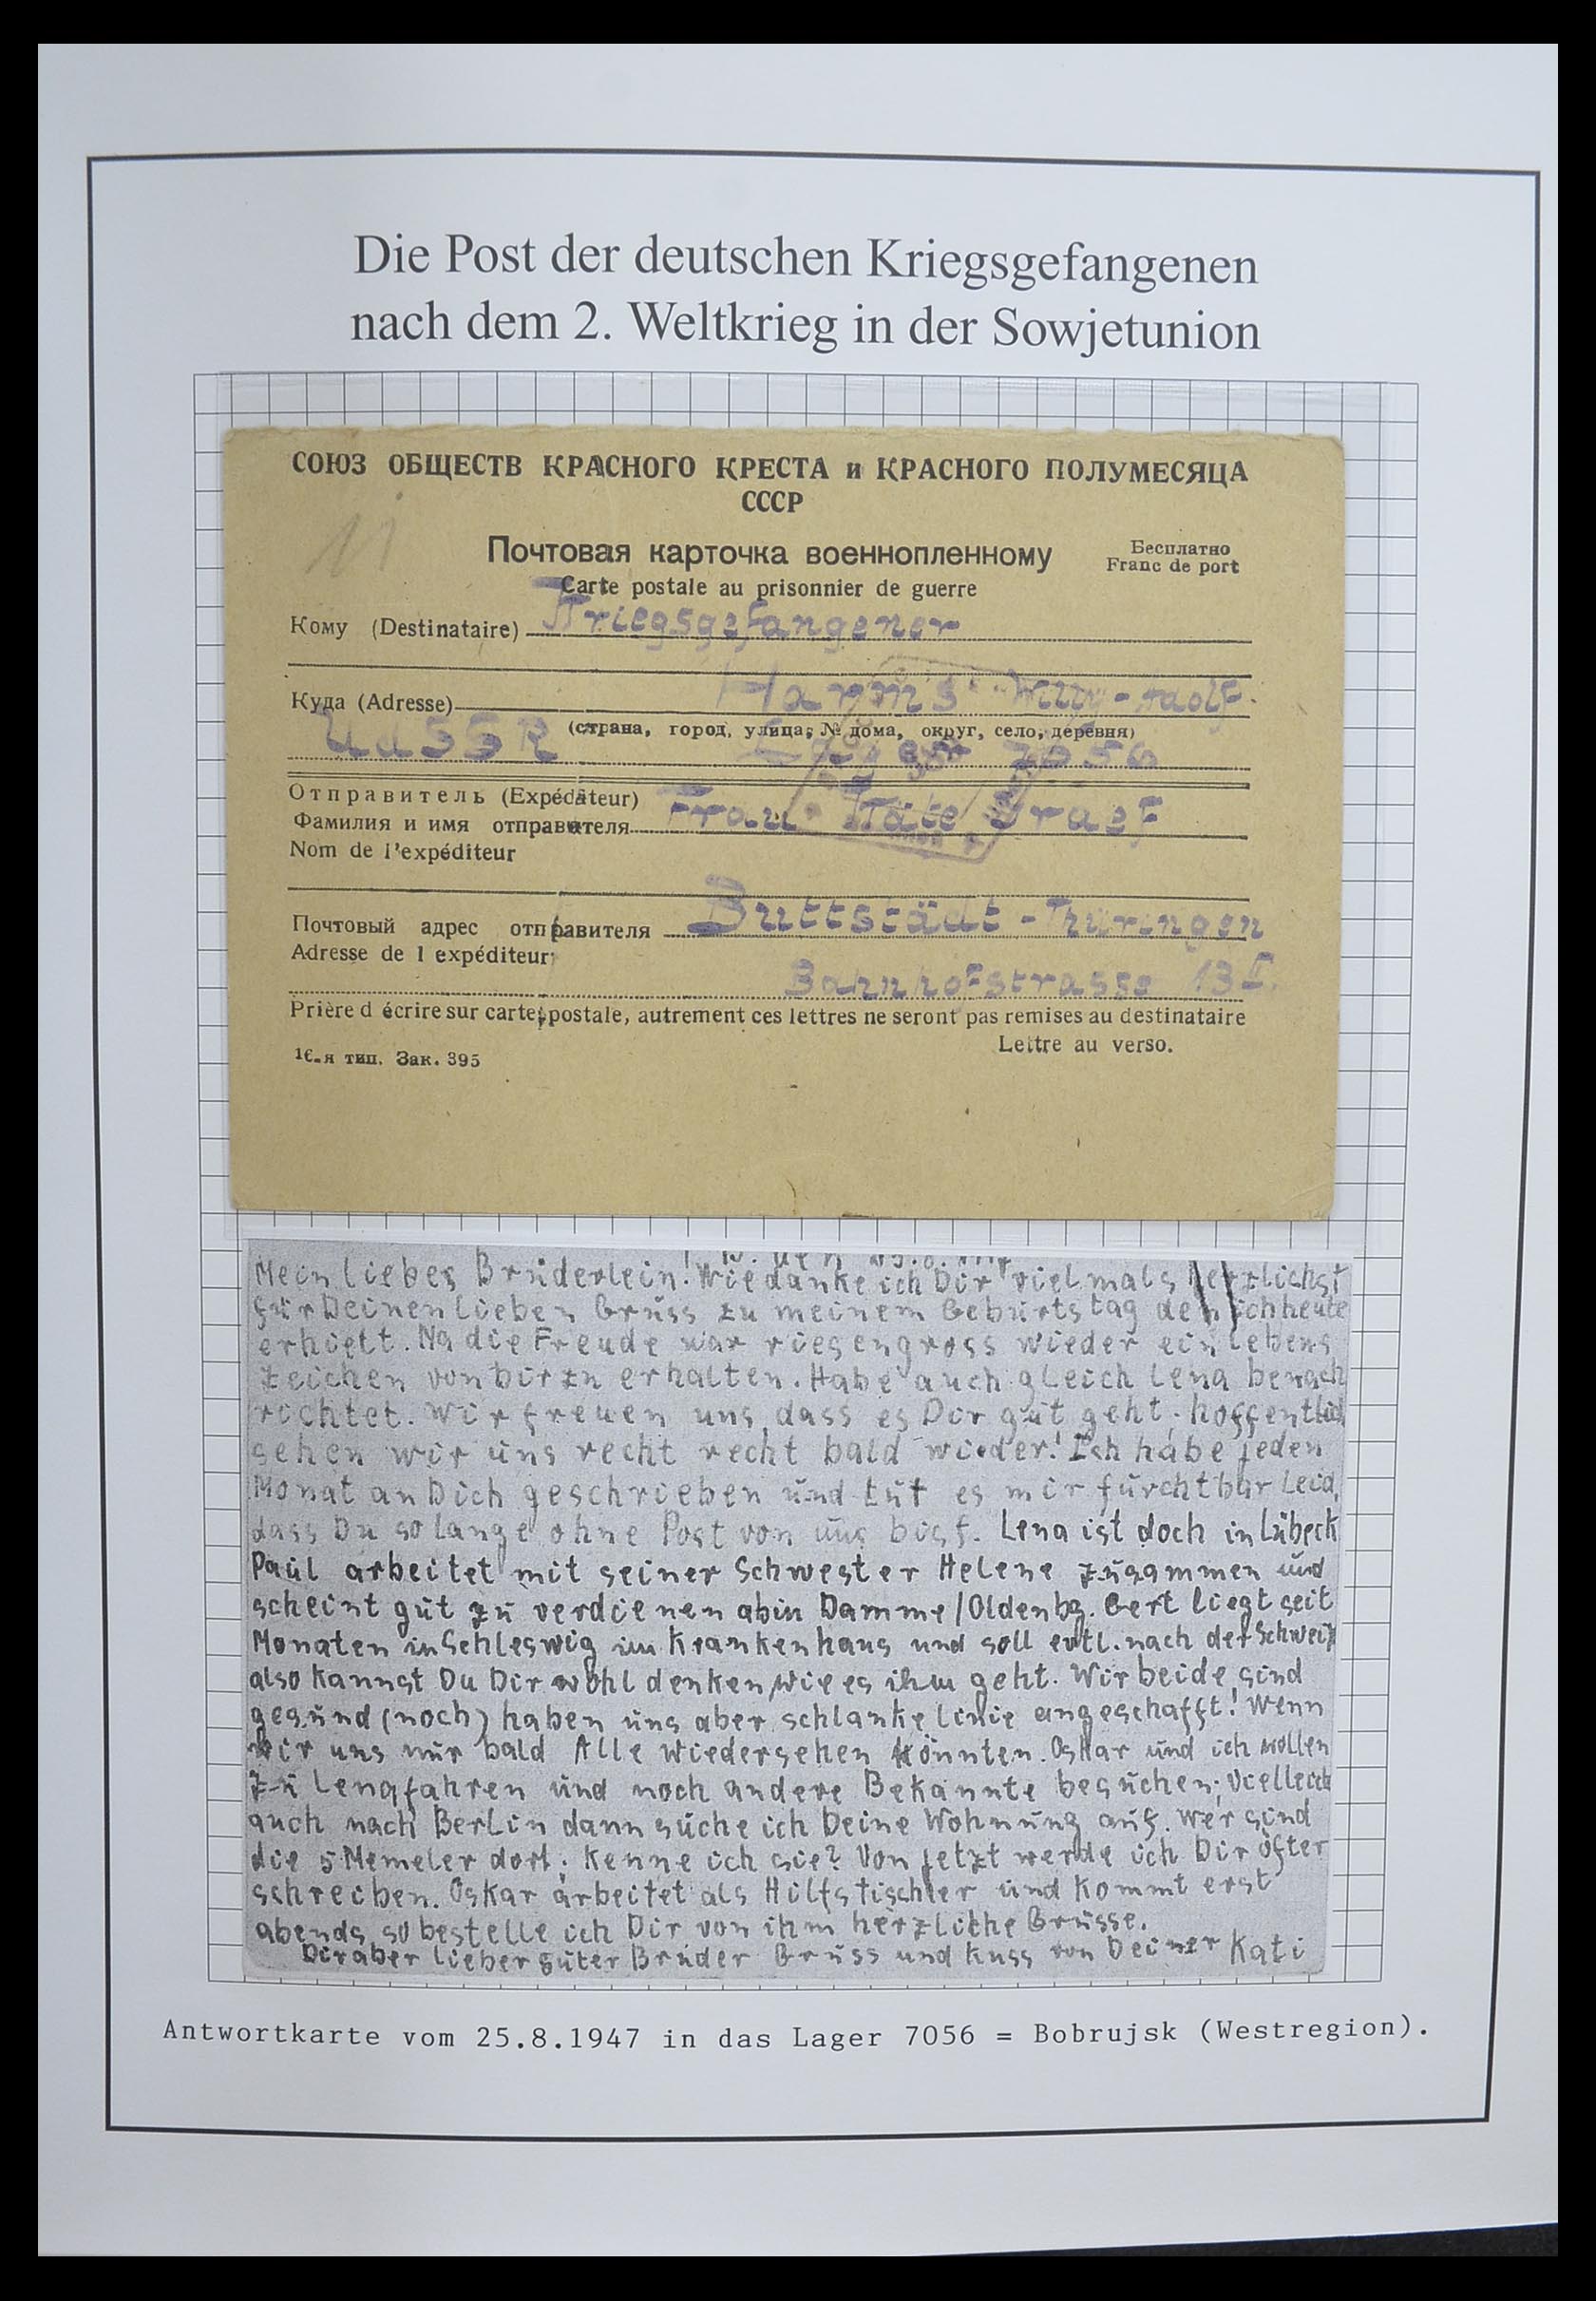 Die Post der deutschen Kriegsgefangenen
nach dem 2. Weltkrieg in der Sowjetunion
СОЮЗ ОБЩЕСТВ КРАСНОГО КРЕСТА и КРАСНОГО ПОЛУМЕСЯЦА
СССР
11
Почтовая карточка военнопленному
Бесплатно
Franc de port
Carte postale au prisonnier de guerre
Кому (Destinataire) Kriegsgefangener
Куда (Adresse) Harms Willy-Adolf.
(страна, город, улица, № дома, округ, село, деревня)
UdSSR Lager 7056
Отправитель (Expéditeur)
Фамилия и имя отправителя Frau Käte Graef
Nom de l'expéditeur
Почтовый адрес отправителя Buttstädt - Thüringen
Adresse de l expéditeur
Bahnhofstrasse 13 I.
Prière d écrire sur carte postale, autrement ces lettres ne seront pas remises au destinataire
Lettre au verso.
16-я тип. Зак. 395
Mein liebes Brüderlein! Wie danke ich Dir vielmals herzlichst
für Deinen lieben Grüss zu meinem Gebürtstag den ich heute
erhielt. Na die Freude war riesengross wieder ein Lebens
zeichen von Dir zu erhalten. Habe auch gleich Lena benach
richtet. Wir freuen uns, dass es Dir güt geht. hoffentlich
sehen wir üns recht recht bald wieder! Ich habe jeden
Monat an Dich geschrieben ünd tüt es mir fürchtbar Leid,
dass Du so lange ohne Post von üns bist. Lena ist doch in Lübeck
Paül arbeitet mit seiner Schwester Helene züsammen und
scheint güt zü verdienen ab in Damme/Oldenbg. Gert liegt seit
Monaten in Schleswig im Krankenhaus und soll evtl. nach der Schweiz
also kannst Du Dir wohl denken, wie es ihm geht. Wir beide sind
gesünd (noch) haben üns aber schlanke Linie angeschafft! Wenn
wir uns nür bald Alle wiedersehen könnten. Oskar ünd ich wollen
zü Lena fahren ünd noch andere Bekannte besüchen, Vielleicht
auch nach Berlin dann süche ich Deine Wohnüng auf. Wer sind
die 5 Memeler dort. Kenne ich sie? Von jetzt werde ich Dir öfter
schreiben. Oskar arbeitet als Hilfstischler und kommt erst
abends, so bestelle ich Dir von ihm herzliche Grüsse.
Dir aber lieber güter Brüder Grüss und Kuss von Deiner Kati
Antwortkarte vom 25.8.1947 in das Lager 7056 = Bobrujsk (Westregion).